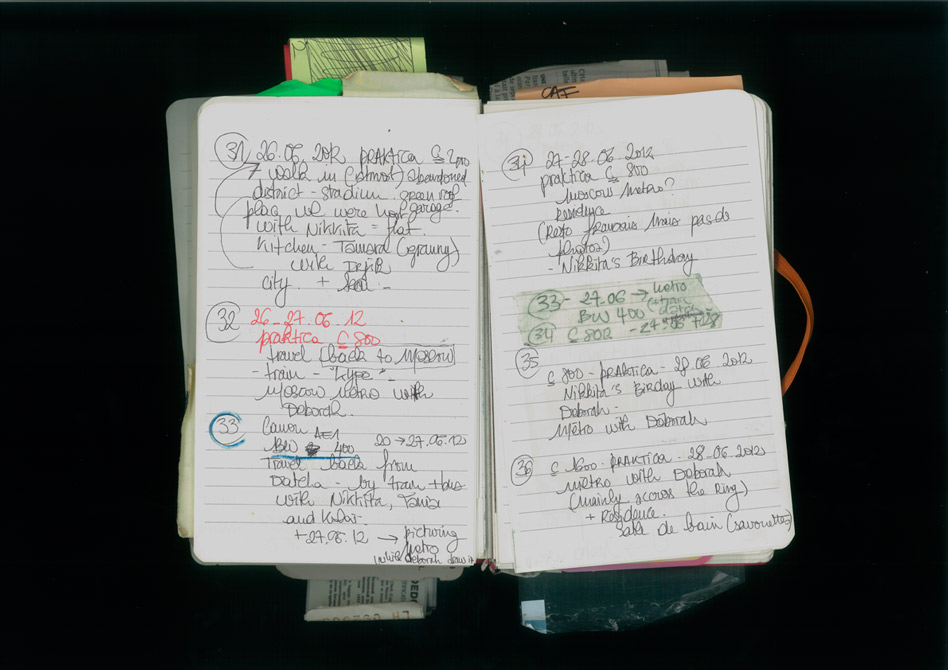 31 26.06.2012 PRAKTICA C
walk in (almost) abandoned
district - stadium green roof
place we were garage.
with Nikkita = flat.
Kitchen - Tamara (granny)
with
city +
32 26-27.06.12
praktica C 800
travel (back to Moscow)
- train -
Moscow Metro with
Deborah.
33 Canon AE1
BW 400 20 → 27.06.12
Travel back from
Datcha - by tram +
with Nikkita,
and
+ 27.06.12 → picturing
Metro
(while Deborah draw it
CAF
34 27-28.06.2012
praktica C 800
Moscow Metro?
Residence
(Resto francais mais pas de
photos?
- Nikkita's Birthday
33 - 27.06 → Metro
BW 400
34 C 800 - 27.06 + 28
35
C 800 - PRAKTICA - 28.06.2012
Nikkita's Birday with
Deborah -
Métro with Deborah
36 C 1600 - PRAKTICA - 28-06.2012
Métro with Deborah
(mainly across the Ring)
+ Residence.
salle de bain (savonettes)